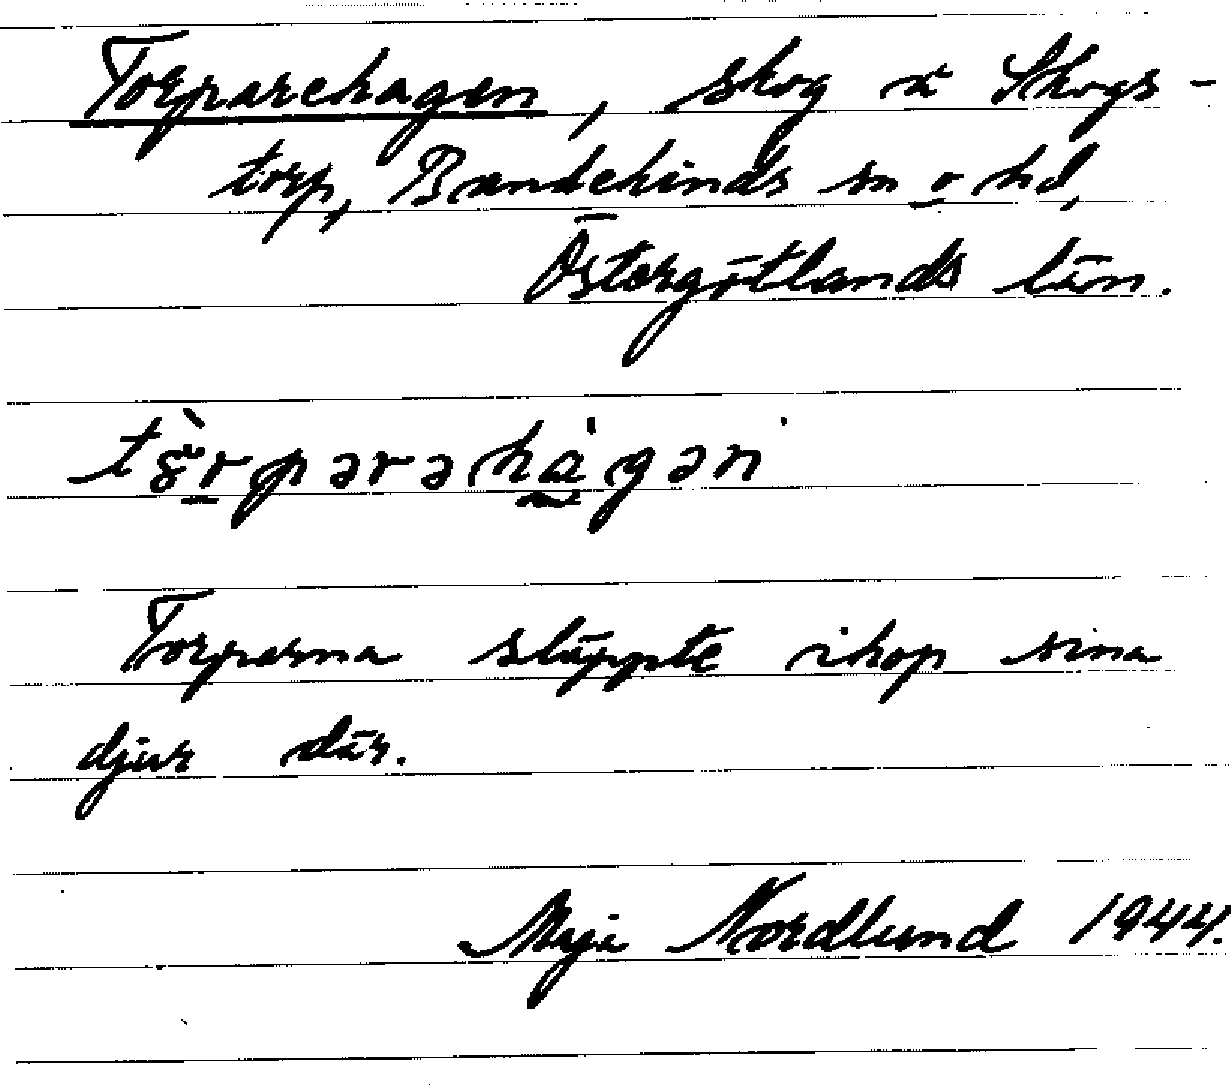 Torparehagen, skog i Skogs-
torp, Bankekinds sn o hd,
Östergötlands län.
tȣ̀rparahágan
Torparna släppte ihop sina
djur där.
Maja Nordlund 1944.